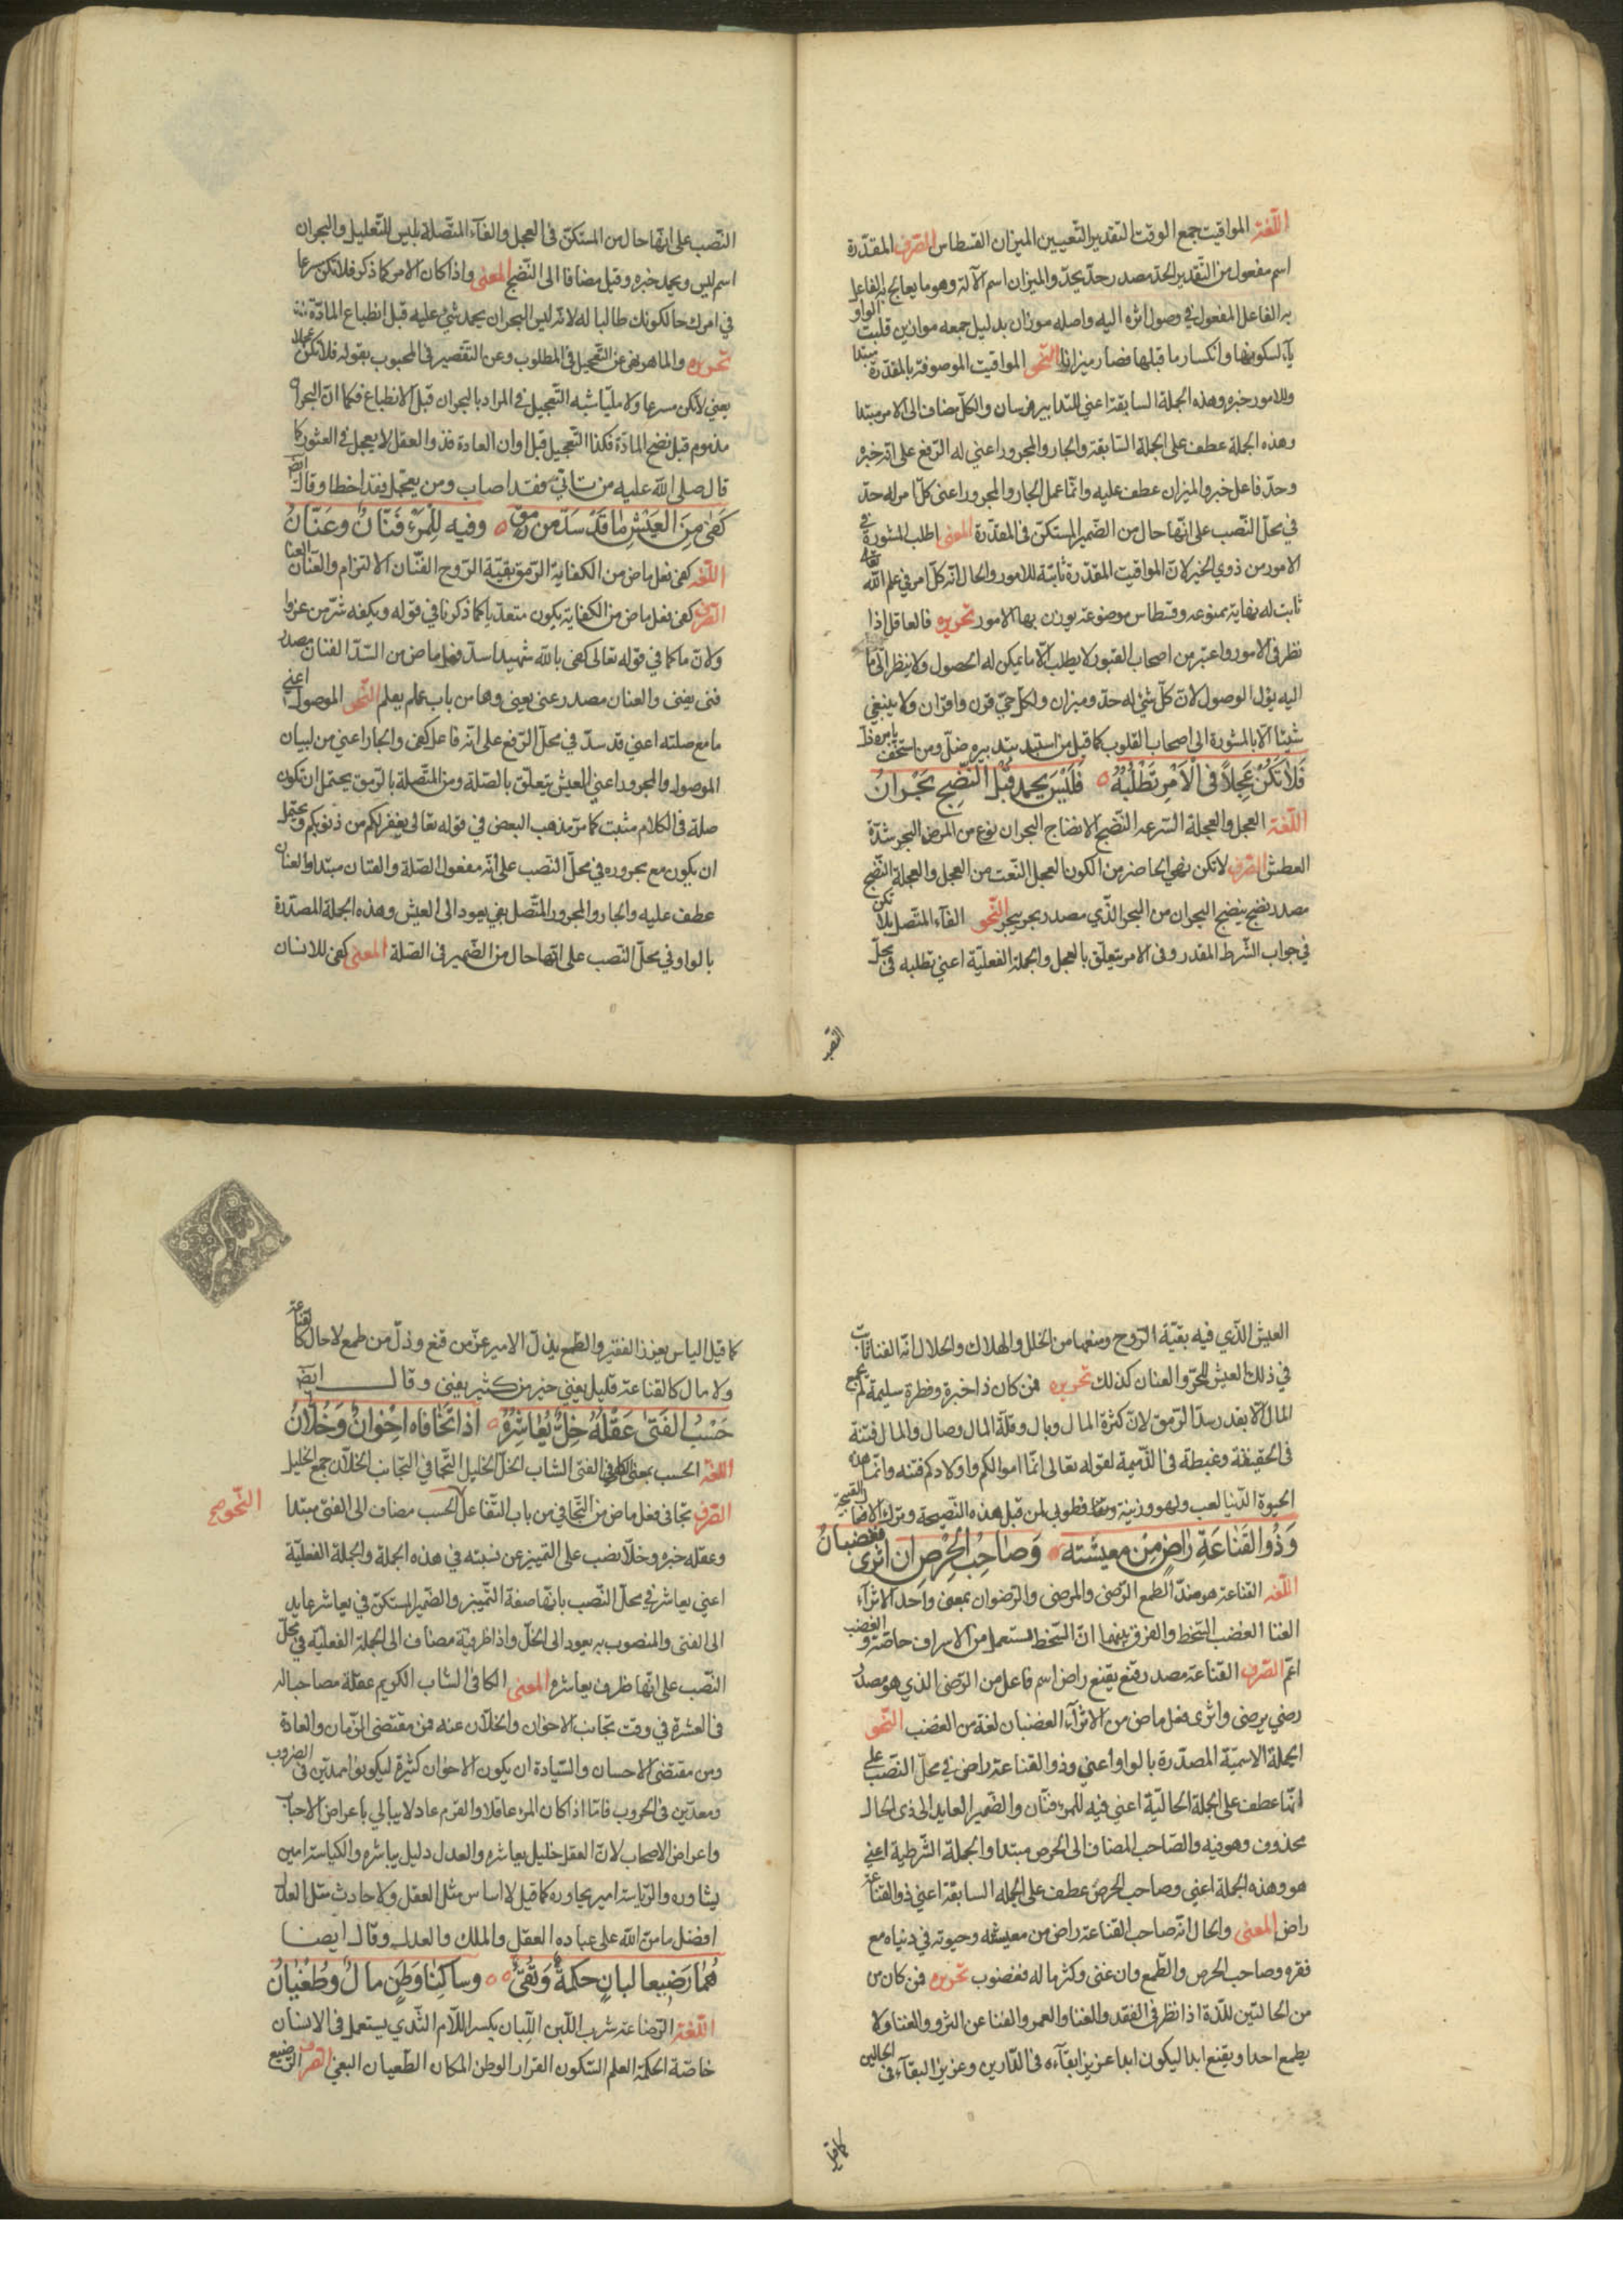 اللّغة المواقيت جمع الوقت التقدير التّعيين الميزان القسطاس الصّرف المقدّرة
اسم مفعول من التّقدير الحدّ مصدر حدّ يحدّ والميزان اسم الآلة وهو ما يعالج به الفاعل
به الفاعل المفعول في وصول اثره اليه واصله موزان بدليل جمعه موازين قلبت الواو
ياء لسكونها وانكسار ما قبلها فصار ميزانا النّحو المواقيت الموصوفة بالمقدّرة مبتدا
وللامور خبره وهذه الجملة السابقة اعني للتدابير فرسان والكلّ مضاف الى الامر مبتدا
وهذه الجملة عطف على الجملة السّابقة والجار والمجرور اعني له الرّفع على انّه خبره
وحدّ فاعل خبر والميزان عطف عليه وانّما عمل الجار والمجرور اعني كلّ امر له حدّ
في محلّ النّصب على انّها حال من الضّمير المستكنّ في المقدّرة المعنى اطلب المشورة في
الامور من ذوي الخير لانّ المواقيت المقدّرة ثابتة للامور والحال انّه كلّ امر في علم الله تعالى
ثابت له نهاية ممنوعة وقسطاس موضوعة يوزن بها الامور تحريره فالعاقل اذا
نظر في الامور واعتبر من اصحاب القبور لا يطلب الّا ما يمكن له الحصول ولا ينظر الى ما
اليه يؤل الوصول لانّ كلّ شئ له حدّ وميزان ولكلّ حيّ قرن واقران ولا ينبغي
شيئا الّا بالمشورة الى اصحاب القلوب كما قيل من استبد بتدبيره ضلّ ومن استخفّ بامره ذلّ
فَلاٰ تَكُنْ عَجِلاً فى الْاَمرِ تَطْلُبُهُ فَلَيْسَ يحمد قَبْلَ النُّضجِ بَحْرانُ
اللّغة العجل والعجلة السّرعة النّضج الانضاج البحران نوع من المرض البحر شدّة
العطش الصّرف لا تكن نهي الحاضر من الكون العجل النّعت من العجل والعجلة النّضج
مصدر نضج ينضج البحران من البحر الّذي مصدر بحر يبحر النّحو الفاء المتّصل بلا تكن
في جواب الشّرط المقدر وفي الامر يتعلّق بالعجل والجملة الفعليّة اعني تطلبه في محلّ
النّصب
النّصب على انّها حال من المستكنّ في العجل والفاء المتّصلة بليس للتّعليل والبحران
اسم ليس ويحمد خبره وقبل مضافا الى النّضج المعنى واذا كان الامر كما ذكر فلا تكن سرعا
في امرك حال كونك طالبا له لانّه ليس البحران يحمد شئ عليه قبل انطباع المادّة
تحريره والماهر نهى عن التّعجيل في المطلوب وعن التّقصير في المحبوب بقوله فلا تكن عجلا
يعني لا تكن مسرعا ولا مليّا شبه التّعجيل في المراد بالبحران قبل الانطباع فكما انّ البحران
مذموم قبل نضج المادّة فكذا التّعجيل قبل اوان العادة فذو العقل لا يعجل في العثور كما
قال صلى الله عليه من تأنّى فقد اصاب ومن يعجّل فقد اخطا وقال ايضا
كَفىٰ مِنَ الْعَيْشِ مٰا قَدْ سَدَّ مِن رمَقٍ وفيه لِلْمرْءِ قَنّانٌ وعَنّانُ
اللّغة كفى فعل ماض من الكفاية الرّمق بقيّة الرّوح القنّان الالتزام والعنّان العنا
الصّرف كفى فعل ماض من الكفاية يكون متعدّيا كما ذكرنا في قوله ويكفه شرّ من عزوا
ولازما كما في قوله تعالى كفى بالله شهيدا سدّ فعل ماض من السّدّ القنان مصدر
قنى يقنى والعنان مصدر عنى يعنى وهما من باب علم يعلم النّحو الموصول اعني
ما مع صلته اعني قد سدّ في محلّ الرّفع على انّه فاعل كفى والجار اعني من لبيان
الموصول والمجرور اعني العيش يتعلّق بالصّلة ومن المتّصلة بالرّمق يحتمل ان تكون
صلة في الكلام مثبت كما مرّ مذهب البعض في قوله تعالى يغفر لكم من ذنوبكم ويحتمل
ان يكون مع مجروره في محلّ النّصب على انّه مفعول الصّلة والقنان مبتدا والعنان
عطف عليه والجار والمجرور المتّصل بفي يعود الى العيش وهذه الجملة المصدّرة
بالواو في محلّ النّصب على انّها حال من الضّمير في الصّلة المعنى كفى للانسان
العيش الّذي فيه بقيّة الرّوح ومنعها من الخلل والهلاك والحلال انّه القنا ثابت
في ذلك العيش للحرّ والعنان كذلك تحريره فمن كان ذا خبرة وفطرة سليمة لم يجمع
المال الّا بقدر سدّ الرّمق لانّ كثرة المال وبال وقلّة المال وصال والمال فتنة
في الحقيقة وغبطة في الذّميمة لقوله تعالى انّما اموالكم واولادكم فتنة وانّما هذه
الحيوة الدّنيا لعب ولهو وزينة وتفاخر فطوبى لمن قبل هذه النّصيحة وترك الافعال القبيحة
وَذُو القَنٰاعَةِ رٰاضٍ مِنْ معيشَتِه وَصٰاحِبُ الْحِرْصِ ان اثرىٰ فَغَضبانُ
اللّغة القناعة هو ضدّ الطمع الرّضى والمرضى والرّضوان بمعنى واحد الاثراء
الغنا الغضب السّخط والفرق بينهما انّ السّخط يستعمل من الاسراف خاصّة والغضب
اعمّ الصّرف القناعة مصدر قنع يقنع راض اسم فاعل من الرّضى الذي هو مصدر
رضي يرضى واثرى فعل ماض من الاثراء الغضبان لغة من الغضب النّحو
الجملة الاسميّة المصدّرة بالواو اعني وذو القناعة راض في محلّ النّصب على
انّها عطف على الجملة الحاليّة اعني فيه للمرء قنّان والضّمير العايد الى ذى الحال
محذوف وهو فيه والصّاحب المضاف الى الحرص مبتدا والجملة الشّرطية اعني
هو وهذه الجملة اعني وصاحب الحرص عطف على الجملة السابقة اعني ذو القناعة
راض المعنى والحال انّه صاحب القناعة راض من معيشته وحيوته في دنياه مع
فقره وصاحب الحرص والطّمع وان غنى وكثر ماله فغضوب تحريره فمن كان من
من الحالتين للذّة اذا نظر في الفقد والغنا والعمر والفنا عن الثرو والغنا ولا
يطمع احدا ويقنع ابدا ليكون ابدا عزيز ابقاءه في الدّارين وعزيز البقاء في الحالين
كما قيل
كما قيل الياس يعزز الفقير والطّمع يذلّ الامير عزّ من قنع وذلّ من طمع لا حال كالقناعة
ولا مال كالقناعة قليل يغني خير من كثير يغنى وقال ايضا
حَسْبُ الفَتىٰ عَقْلهُ خِلّاً يُعٰاشِرُهُ اذا تَجٰافاه اِخْوانٌ وَخُلّانُ
اللّغة الحسب بمعنى الكافى الفتى الشاب الخلّ الخليل التّجافي التّجانب الخلّان جمع الخليل
الصّرف تجافى فعل ماض من التّجافي من باب التّفاعل الحسب مضاف الى الفتى مبتدا
النّحو صح
وعقله خبره وخلّا نصب على التّمييز عن نسبته في هذه الجملة والجملة الفعليّة
اعني يعاشر في محلّ النّصب بانّها صفة التّمييز والضّمير المستكنّ في يعاشر عايد
الى الفتى والمنصوب به يعود الى الخلّ واذا ظرفيّة مضاف الى الجملة الفعليّة في محلّ
النّصب على انّها ظرف يعاشره المعنى الكافى الشاب الكريم عقلة مصاحبا له
في العشرة في وقت تجانب الاخوان والخلّان عنه فمن مقتضى الزّمان والعادة
ومن مقتضى الاحسان والسّيادة ان يكون الاخوان كثيرة ليكونوا ممدّين في الضروب
ومعدّين في الحروب فامّا اذا كان المرء عاقلا والقرم عادلا يبالي باعراض الاحباب
واعراض الاصحاب لانّ العقل خليل يعاشره والعدل دليل يباشره والكياسة امين
يشاوره والرّياسة امير يجاوره كما قيل لا اساس مثل العقل ولا حادث مثل العدل
افضل ما منّ الله على عباده العقل والملك والعدل وقال ايضا
هُمٰا رَضيعا لبانٍ حكمةٌ وَتُقىً وساكِنٰا وَطَنٍ مالٌ وطُغْيانُ
اللّغة الرّضاعة شرب اللّبن اللّبان بكسر اللّام الثّدي يستعمل في الانسان
خاصّة الحكمة العلم السّكون القرار الوطن المكان الطّغيان البغي الصّرف الرّضيع